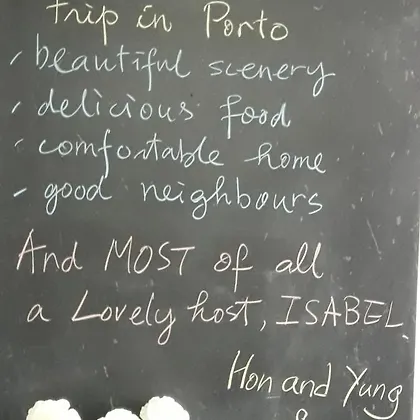 trip in Porto
- beautiful scenery
- delicious food
- comfortable home
- good neighbours
And MOST of all
a Lovely host, ISABEL
Hon and Yung